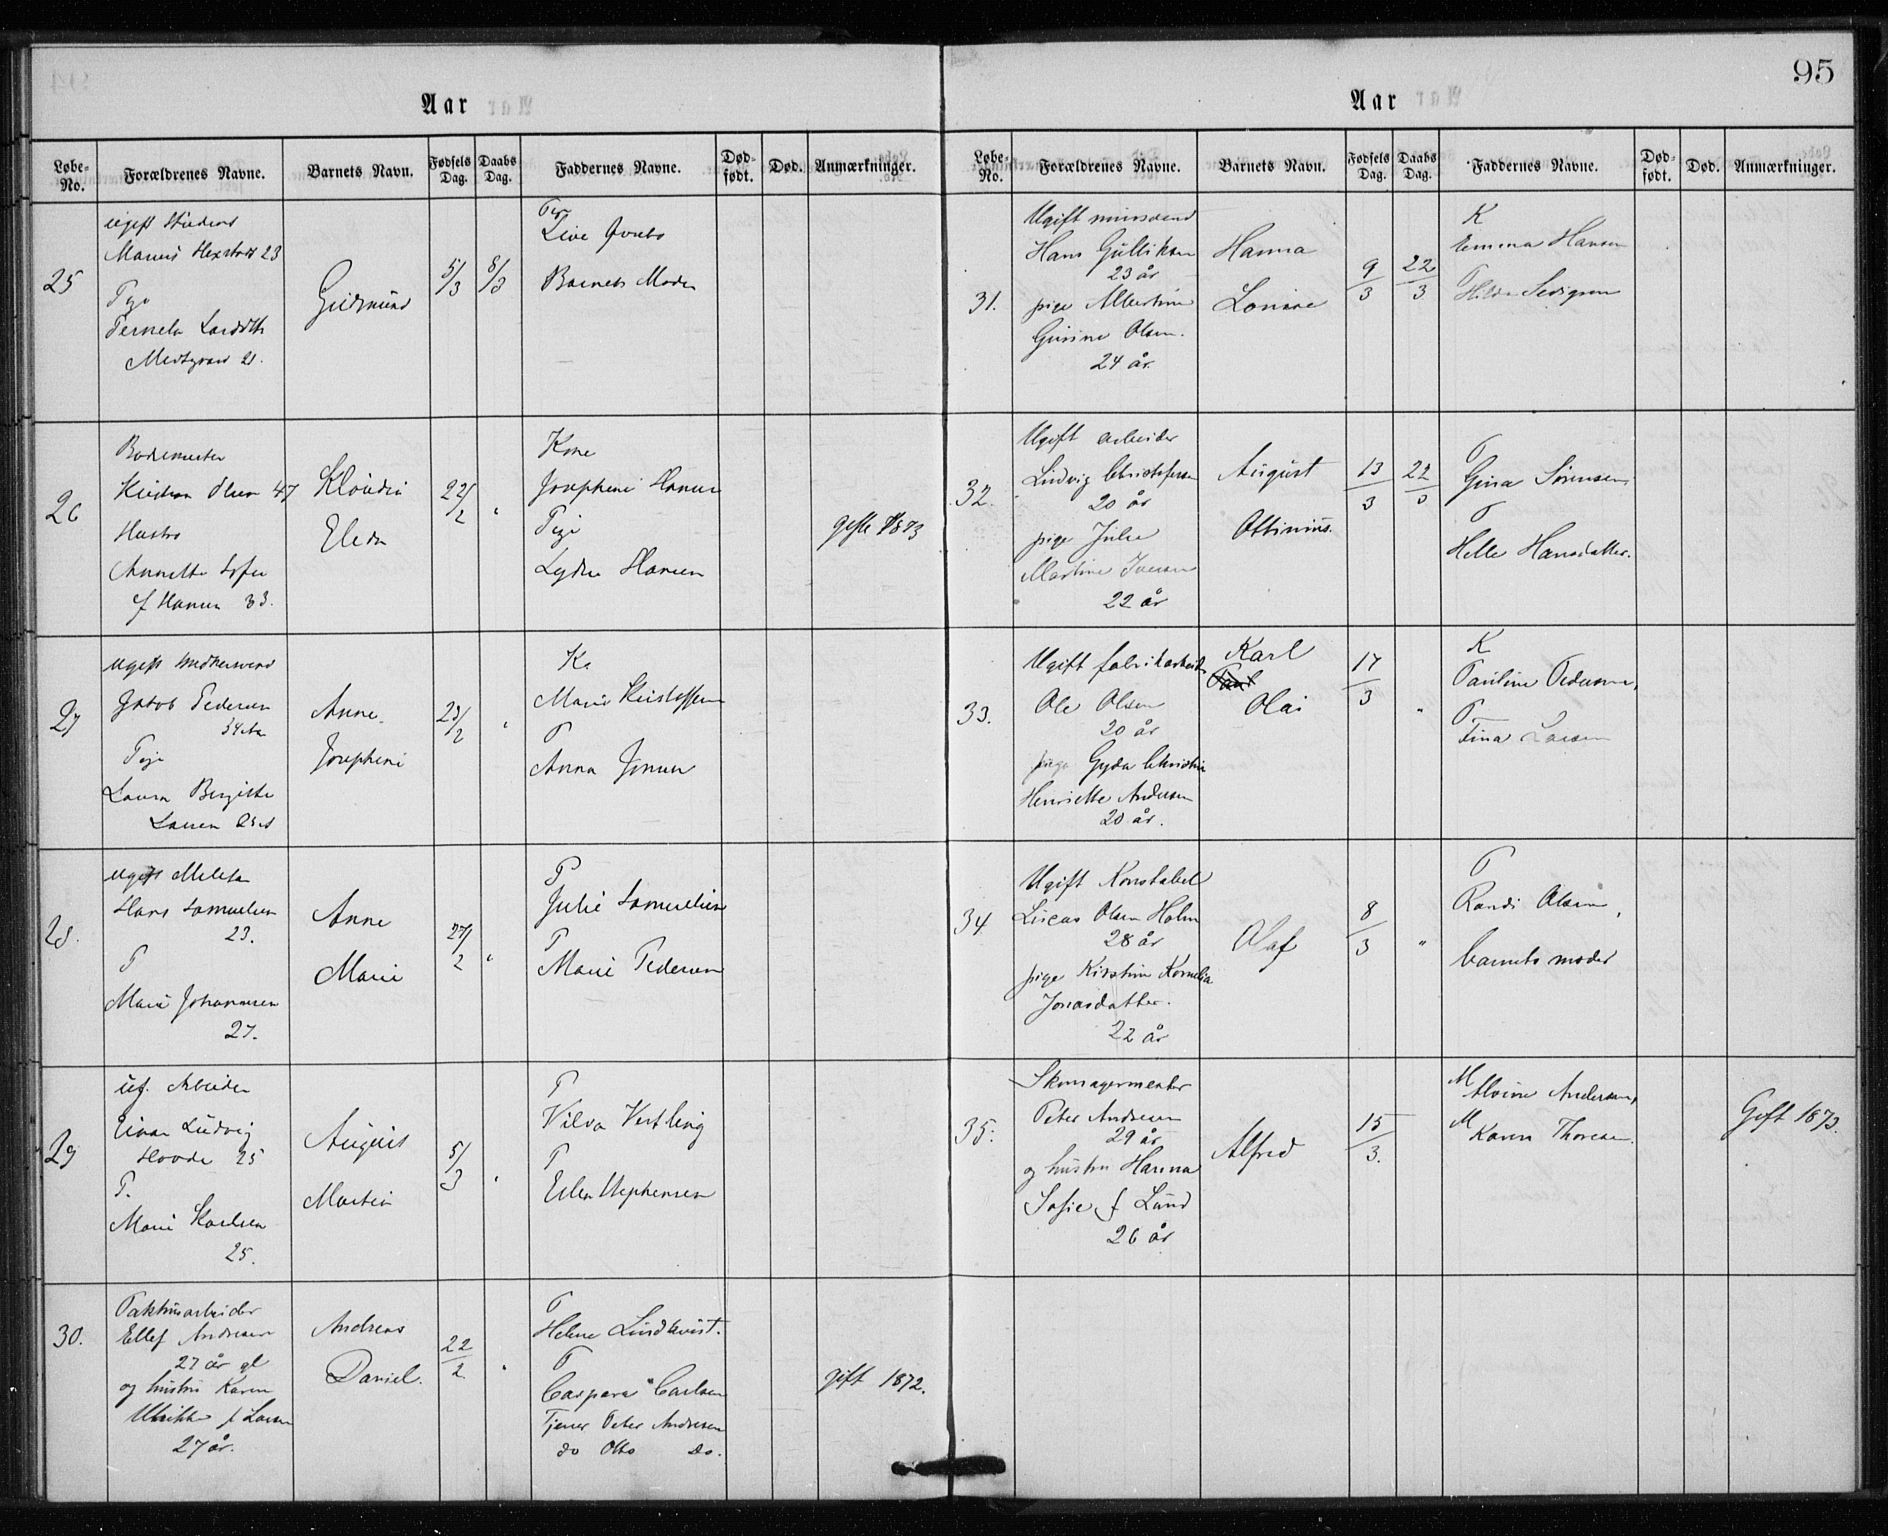 95
Aar
Løbe-No. Forældrenes Navne. Barnets Navn. Fødsels Dag. Daabs Dag. Faddernes Navne. Dødfødt. Død. Anmærkninger.
25
ugift Student
Marius 23
Pige
21.
Gudmund
5/3 8/3
Barnets Moder
26
Bademester
Kristian Olsen 47
Hustro
Annette Sofie
f Hansen 33.
Klaudia
Eleda
22/2 "
Kone
Josephine Hansen
Pige
Lydia Hansen
gifte 1873
27
ugift
Jakob Pedersen
34
Pige
Laura Birgitte
Larsen
Anne
Josephine
23/2 "
K
Marie Kristoffersen
P
Anna Jensen
28.
ugift
Hans Samuelsen
23.
P
Marie Johannesen
27.
Anne
Marie
27/2 "
P
Julie Samuelsen
P
Marie Pedersen
29
ug. Arbeider
Einar Ludvig
25
P.
Marie Karlsen
25.
August
Martin
5/3 "
P
P
Stephensen
30.
Pakhusarbeider
Ellef Andresen
27 år gl
og hustru Karen
Ulrikke f Larsen
27 år.
Andreas
Daniel.
22/2 "
P
Helene Lindkvist.
P
Caspara Carlsen
Tjener Peter Andresen
do Otto do.
gift 1872.
Aar
Løbe-No. Forældrenes Navne. Barnets Navn. Fødsels Dag. Daabs Dag. Faddernes Navne. Dødfødt. Død. Anmærkninger.
31.
Ugift mursvend
Hans Gulliksen
23 år
pige Albertine
Gusine Olsen.
24 år.
Hanna
Lovise
9/3 22/3
K
Emma Hansen
P
Hilda
32.
Ugift arbeider
Ludvig Christofersen
20 år
pige Julie
Martine Iversen
22 år
August
Ottinius.
13/3 22/3
P
Gina Sørensen
P
Helle Hansdatter.
33.
Ugift fabrikarbeider
Ole Olsen
20 år
pige Gyda Christine
Henriette Andersen
20 år.
Karl
Paul
Olai
17/3 "
K
Pauline Pedersen,
P
Tina Larsen
34
Ugift Konstabel
Lucas Olsen Holm
28 år
pige Kirstine Kornelia
Jonasdatter.
22 år
Olaf
8/3 "
P
Randi Olsen,
barnets moder
35.
Skomagermester
Peter Andresen
29 år
og hustru Hanna
Sofie f Lund
26 år
Alfred
15/3.
M Alvine Andersen,
M Karen Thoresen.
Gift 1873.